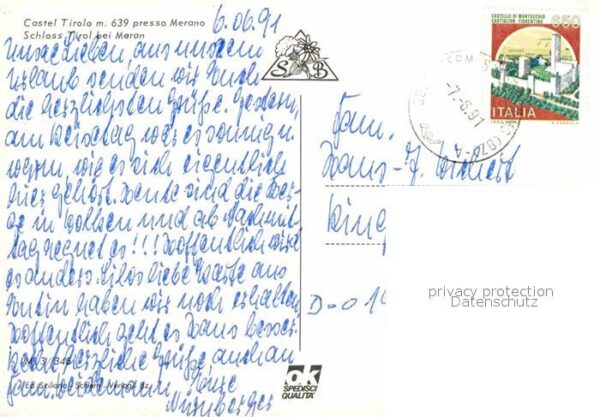 Castel Tirolo m. 639 presso Merano
Schloss Tirol bei Meran
6.06.91
Unsere Lieben, aus unserem
Urlaub senden wir Euch
die herzlichsten Grüße. Gestern,
am Reisetag war es sonnig u.
warm, wie es sich eigentlich
hier gehört. Heute sind die Ber-
ge in Wolken und ab Nachmit-
tag regnet es!!! Hoffentlich wird
es anders. Eure liebe Karte aus
haben wir noch erhalten,
Hoffentlich geht es Hans besser.
herzliche Grüße, auch an
Fam.
Eure
Nürnberger
S B
650
CASTELLO DI MONTECCHIO
CASTIGLION FIORENTINO
ITALIA
-7.-6.91
(BZ) A
Fam.
Hans-J.
D-01
privacy protection
Datenschutz
ok
SPEDISCI
QUALITÀ